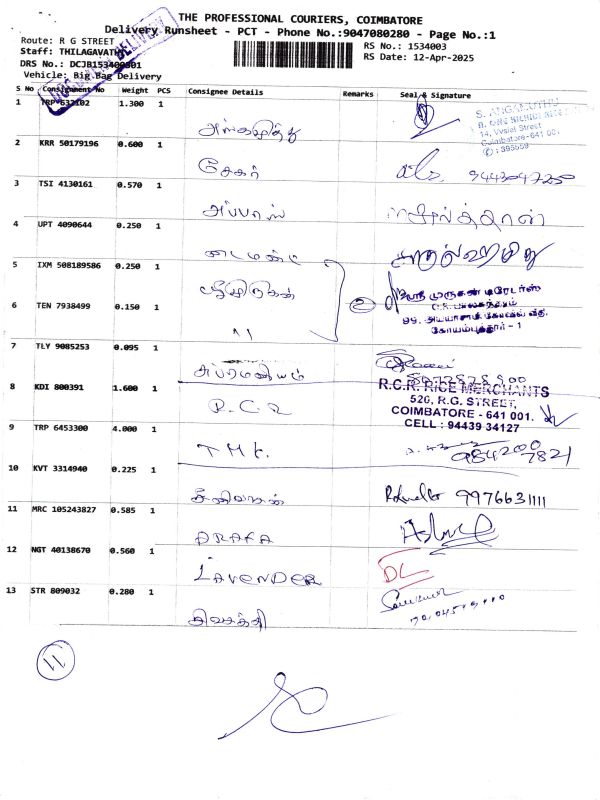 THE PROFESSIONAL COURIERS, COIMBATORE
Delivery Runsheet - PCT - Phone No.:9047080280 - Page No.:1
Route: R G STREET
RS No.: 1534003
Staff: THILAGAVATHI
RS Date: 12-Apr-2025
DRS No.: DCJB153400301
Vehicle: Big Bag Delivery
S No Consignment No Weight PCS Consignee Details Remarks Seal & Signature
1 TRP 632102 1.300 1
S. ANGAMUTHU
14, Vysial Street
Coimbatore-641 001
அங்கமுத்து
2 KRR 50179196 0.600 1
சேகர்
9443047250
3 TSI 4130161 0.570 1
அப்பாஸ்
4 UPT 4090644 0.250 1
டைமண்ட்
5 IXM 508189586 0.250 1
ஸ்ரீ முருகன் டிரேடர்ஸ்
ஸ்ரீமுருகன்
2
6 TEN 7938499 0.150 1
கோயம்புத்தூர் - 1
"
7 TLY 9085253 0.095 1
சுப்ரமணியம்
8 KDI 800391 1.600 1
R.C.R. RICE MERCHANTS
520, R.G. STREET,
R.C.R
COIMBATORE - 641 001.
CELL : 94439 34127
9 TRP 6453300 4.000 1
TMK.
984200
7821
10 KVT 3314940 0.225 1
சீனிவாசன்
9976631111
11 MRC 105243827 0.585 1
ARAFA
12 NGT 40138670 0.560 1
LAVENDER
DL
13 STR 809032 0.280 1
சிவசக்தி
11